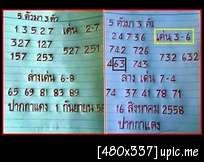 5 ตัวมา 3 ตัว
1 3 5 2 7 เด่น 2-7
327 127
527 251
157 253
ล่างเด่น 6-8
65 69 81 83 89
ปากกาแดง 1 กันยายน 58
5 ตัวมา 3 ตัว
2 4 7 3 6 เด่น 3-6
742 726
732 632
463 743
ล่าง เด่น 7-4
74 37 41 78 71
ปากกาแดง
16 สิงหาคม 2558
[480x337] upic.me